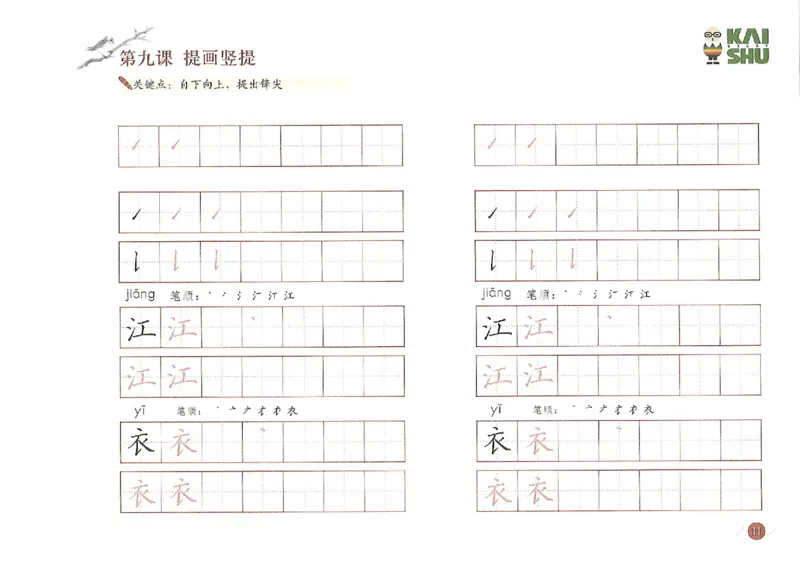 第九课 提画竖提
关键点：自下向上，提出锋尖
KAI
STORY
SHU
jiāng 笔顺：丶 丶 氵 汀 江
江 江
江 江
yī 笔顺：丶 亠 衣
衣 衣
衣 衣
jiāng 笔顺：丶 丶 氵 汀 江
江 江
江 江
yī 笔顺：丶 亠 衣
衣 衣
衣 衣
11